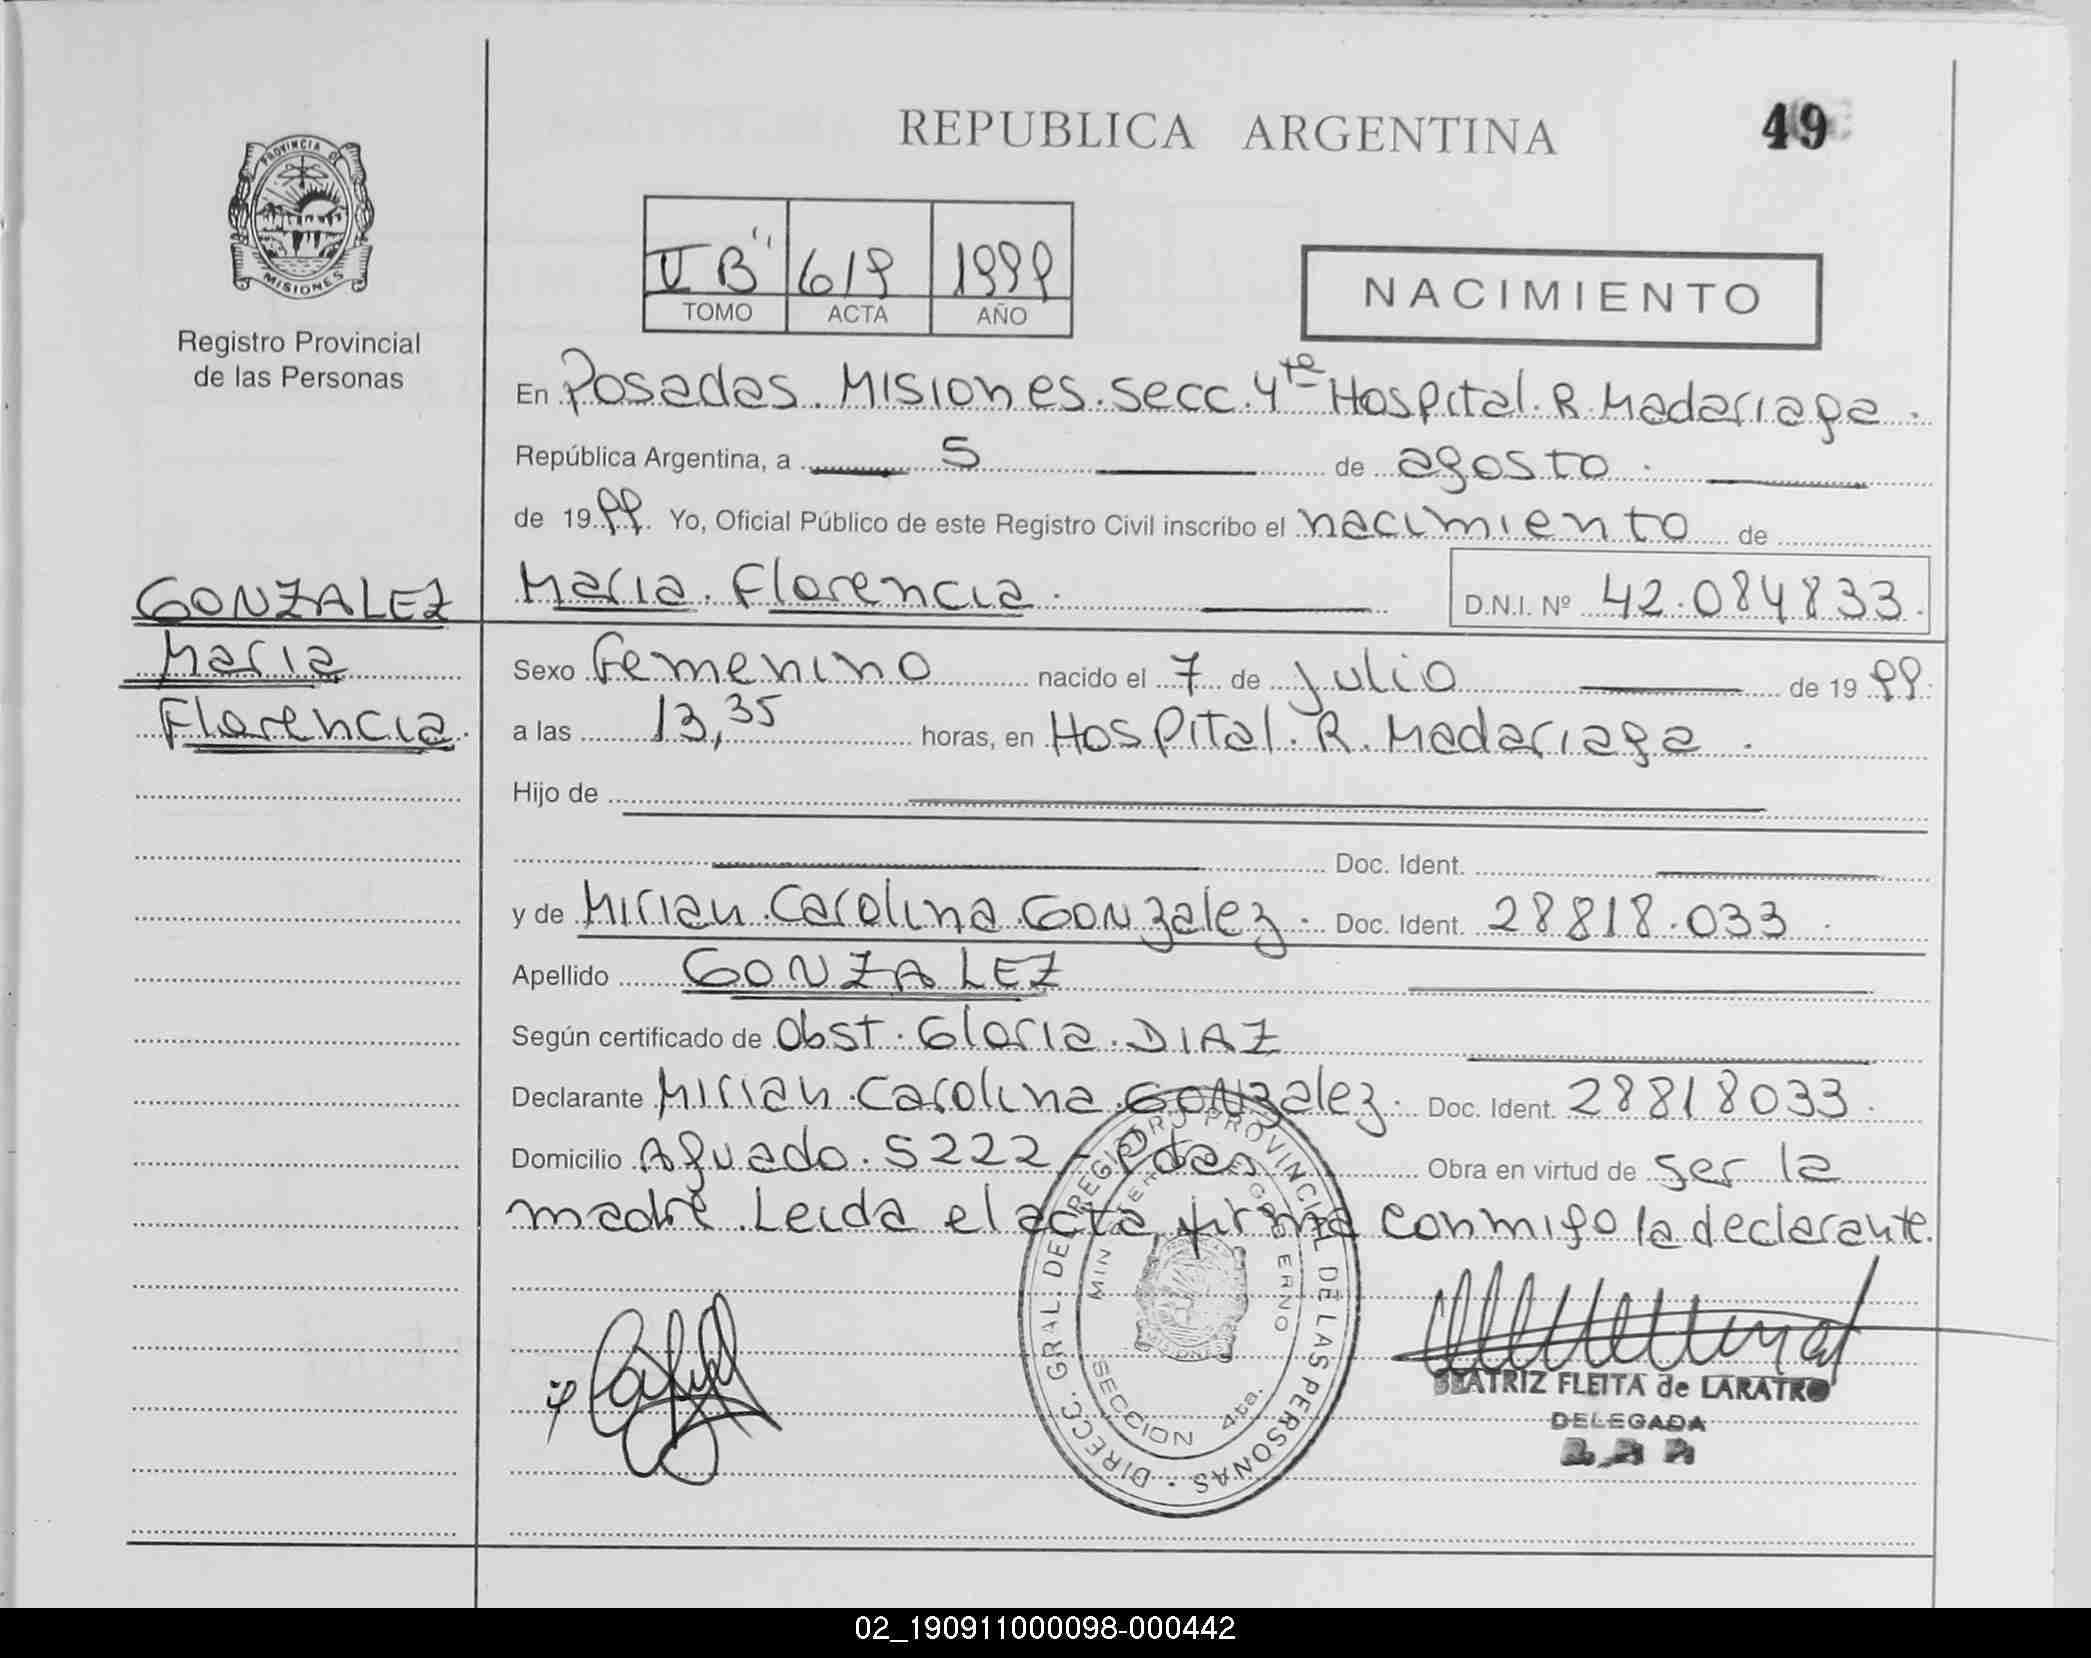 REPUBLICA ARGENTINA
49
PROVINCIA DE
MISIONES
Registro Provincial
de las Personas
II "B" 619 1999
TOMO ACTA AÑO
NACIMIENTO
En Posadas. Misiones. secc. 4ta Hospital. R. Madariaga.
República Argentina, a 5 de agosto.
de 1999. Yo, Oficial Público de este Registro Civil inscribo el nacimiento de
Maria. Florencia. D.N.I. Nº 42.084833.
GONZALEZ
Maria
Florencia.
Sexo Femenino nacido el 7 de julio de 1999.
a las 13,35 horas, en Hospital. R. Madariaga.
Hijo de
Doc. Ident.
y de Mirian. Carolina. Gonzalez. Doc. Ident. 28818.033.
Apellido GONZALEZ
Según certificado de Obst. Gloria. DIAZ
Declarante Mirian. Carolina. Gonzalez. Doc. Ident. 28818033.
Domicilio Aguado. 5222 - Pdas Obra en virtud de ser la
madre. Leida el acta, firma conmigo la declarante.
DIRECC. GRAL. DEL REGISTRO PROVINCIAL DE LAS PERSONAS
SECCION 4ta.
BEATRIZ FLEITA de LARATRO
DELEGADA
02_190911000098-000442